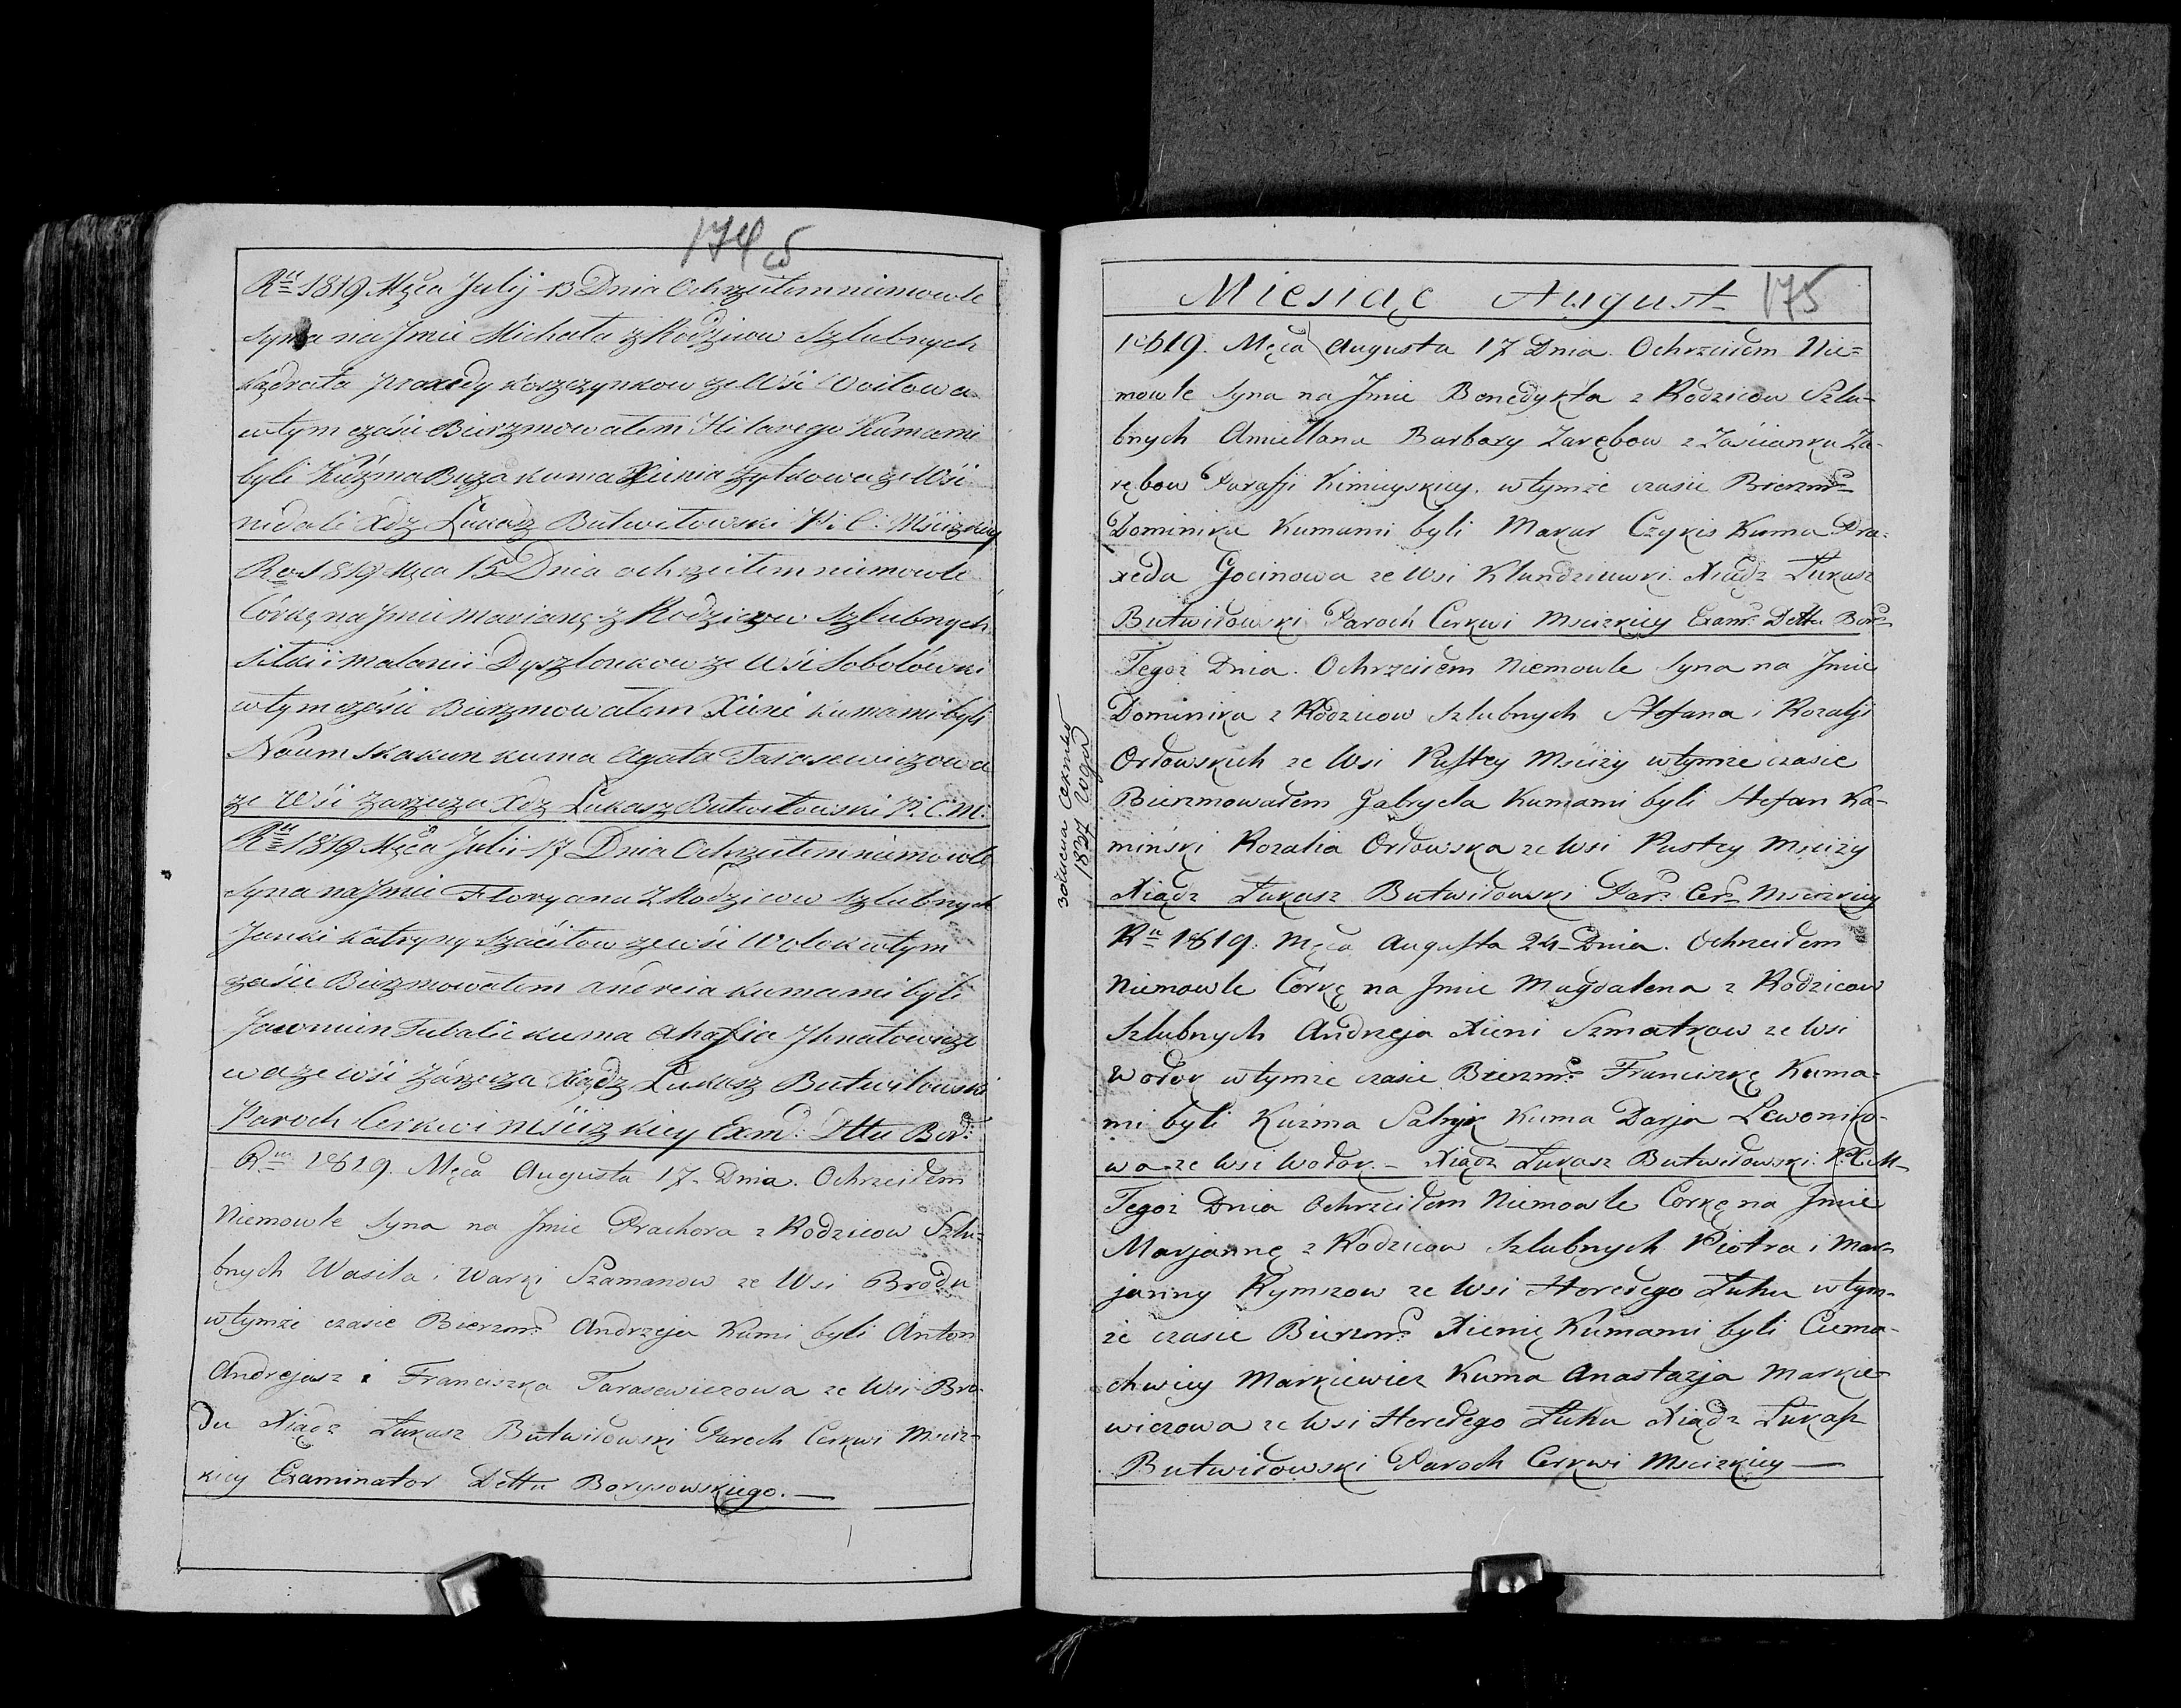 174
Ru 1819 Mca Julij 13 Dnia Ochrzciłem niemowle
syna na Jmie Michała z Rodzicow Szlubnych
Kądrata Praxedy Korzczynkow ze Wsi Woiłowa
wtym czásie Bierzmowałem Hilarego Kumami
byli Kuźma Buza kuma Xienia Zytkowa ze Wśi
nidali Xdz Łukasz Butwiłowski P: C: Mścizkiey
Ro 1819 Mca 15 Dnia ochrzciłem niemowle
Córkę na Jmie Marianę z Rodzicow Szlubnych
Sitki i Malanii Dyszlonkow ze Wśi Sobolówki
wtym czásie Bierzmowałem Xienie kumami byli
Naum Skakun kuma Agata Tarasewiczowa
ze Wśi Zarzecza Xdz Łukasz Butwiłowski P. C. M:
Ru 1819 Mca Julii 17 Dnia Ochrzciłem niemowle
Syna na Jmie Floryana Z Rodzicow Szlubnych
Janki Katryny Száciłow ze wśi Wołok wtym
czásie Bierzmowałem Andreia kumami byli
Jawmien Tubalic kuma Ahafia Jhnatowiczo
wa ze wśi Zárzecza Xiądz Łukasz Butwiłowski
Paroch Cerkwi Mścizkiey Exmr: Dttu Bor:
Ru 1819. Męca Augusta 17. Dnia. Ochrzciłem
Niemowle syna na Jmie Prachora z Rodzicow Szlu-
bnych Wasila i Warki Szamanow ze Wsi Brodu
wtymze czasie Bierzmo Andrzeja Kumi byli Anton
Andrejasz i Franciszka Tarasewiczowa ze Wsi Bro-
du Xiądz Łukasz Butwiłowski Paroch Cerkwi Mściz-
kiey Examinator Dettu Borysowskiego. —
175
Miesiąc August
1819. Męca Augusta 17 Dnia. Ochrzciłem Nie=
mowle syna na Jmie Benedykta z Rodzicow Szlu-
bnych Amiellana Barbary Zarębow z Zaścianku Za-
rębow Parafji Kimieyskiey. wtymże czasie Bierzmo
Dominika Kumami byli Makar Czykis Kuma Pra-
xeda Gocinowa ze Wsi Klundziewki. Xiądz Łukasz
Butwiłowski Paroch Cerkwi Mscizkiey Examr Dettu Boro
Tegoż Dnia. Ochrzciłem Niemowle syna na Jmie
Dominika z Rodzicow Szlubnych Stefana i Rozalji
Orłowskich ze Wsi Pustey Mściży wtymże czasie
Bierzmowałem Gabryela Kumami byli Stefan Ka-
miński Rozalia Orłowska ze Wsi Pustey Mściży
Xiądz Łukasz Butwiłowski Paro Cero Mscizkiey
Ru 1819. Męca Augusta 24 Dnia. Ochrzciłem
Niemowle Córkę na Jmie Magdalena z Rodzicow
Szlubnych Andrzeja Xieni Szmatkow ze Wsi
Wołok wtymże czasie Bierzmo Franciszkę Kuma-
mi byli Kuźma Salnyk Kuma Darja Lewoniko-
wa ze Wsi Wołok. – Xiądz Łukasz Butwiłowski. P. C. M-
Tegoż Dnia Ochrzciłem Niemowle Corkę na Jmie
Marjannę z Rodzicow Szlubnych Piotra i Mar-
janny Rymszow ze Wsi Horełego Łuhu wtym-
że czasie Bierzmo Xienię Kumami byli Ciema-
chwiey Markiewicz Kuma Anastazja Markie-
wiczowa ze Wsi Horełego Łuhu Xiądz Łukasz
Butwiłowski Paroch Cerkwi Mscizkiey —
1837 года